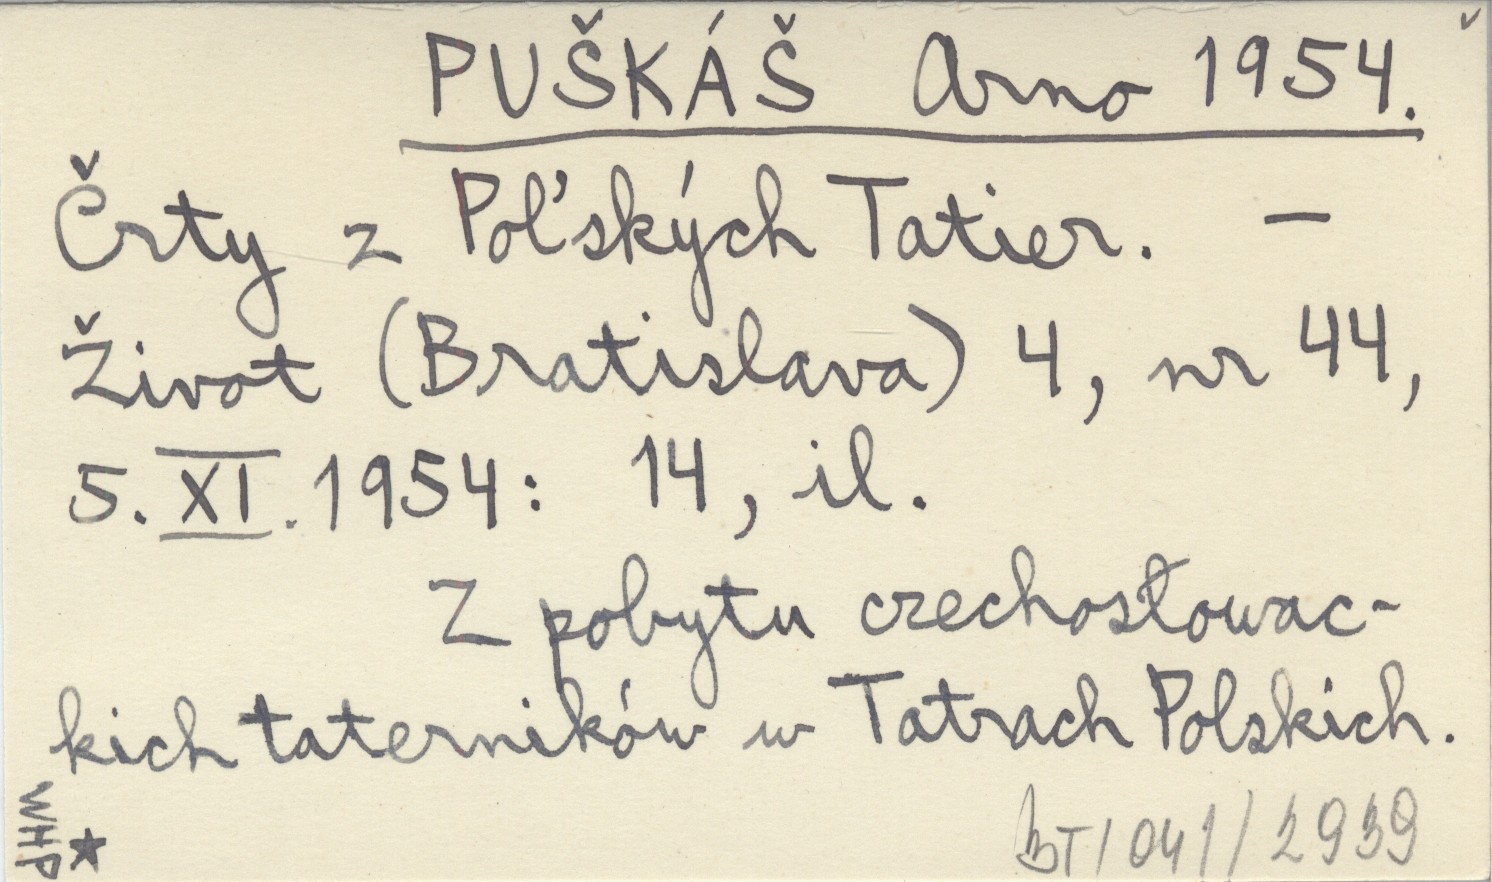 PUŠKÁŠ Arno 1954.
Črty z Poľských Tatier. –
Život (Bratislava) 4, nr 44,
5. XI. 1954: 14, il.
Z pobytu czechosłowac-
kich taterników w Tatrach Polskich.
WHP ★
BT/041/2939